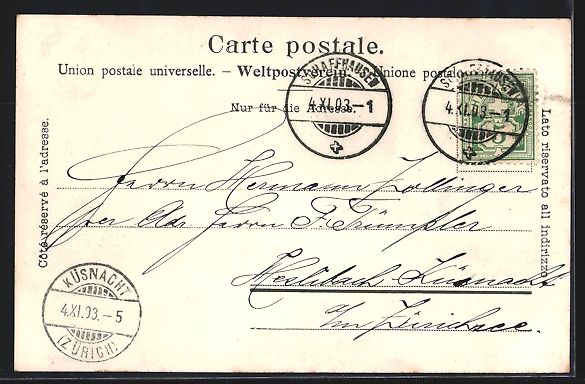 Carte postale.
Union postale universelle. – Weltpostverein. – Unione postale
Nur für die Adresse.
SCHAFFHAUSEN
4.XI.03.–1
SCHAFFHAUSEN
4.XI.03.–1
Côté réservé à l'adresse.
Lato riservato all indirizzo
Herrn Hermann Zollinger
per Ads. Herrn F. Trümpler
Heslibach Küsnacht
am Zürichsee.
KÜSNACHT
4.XI.03.–5
(ZÜRICH)